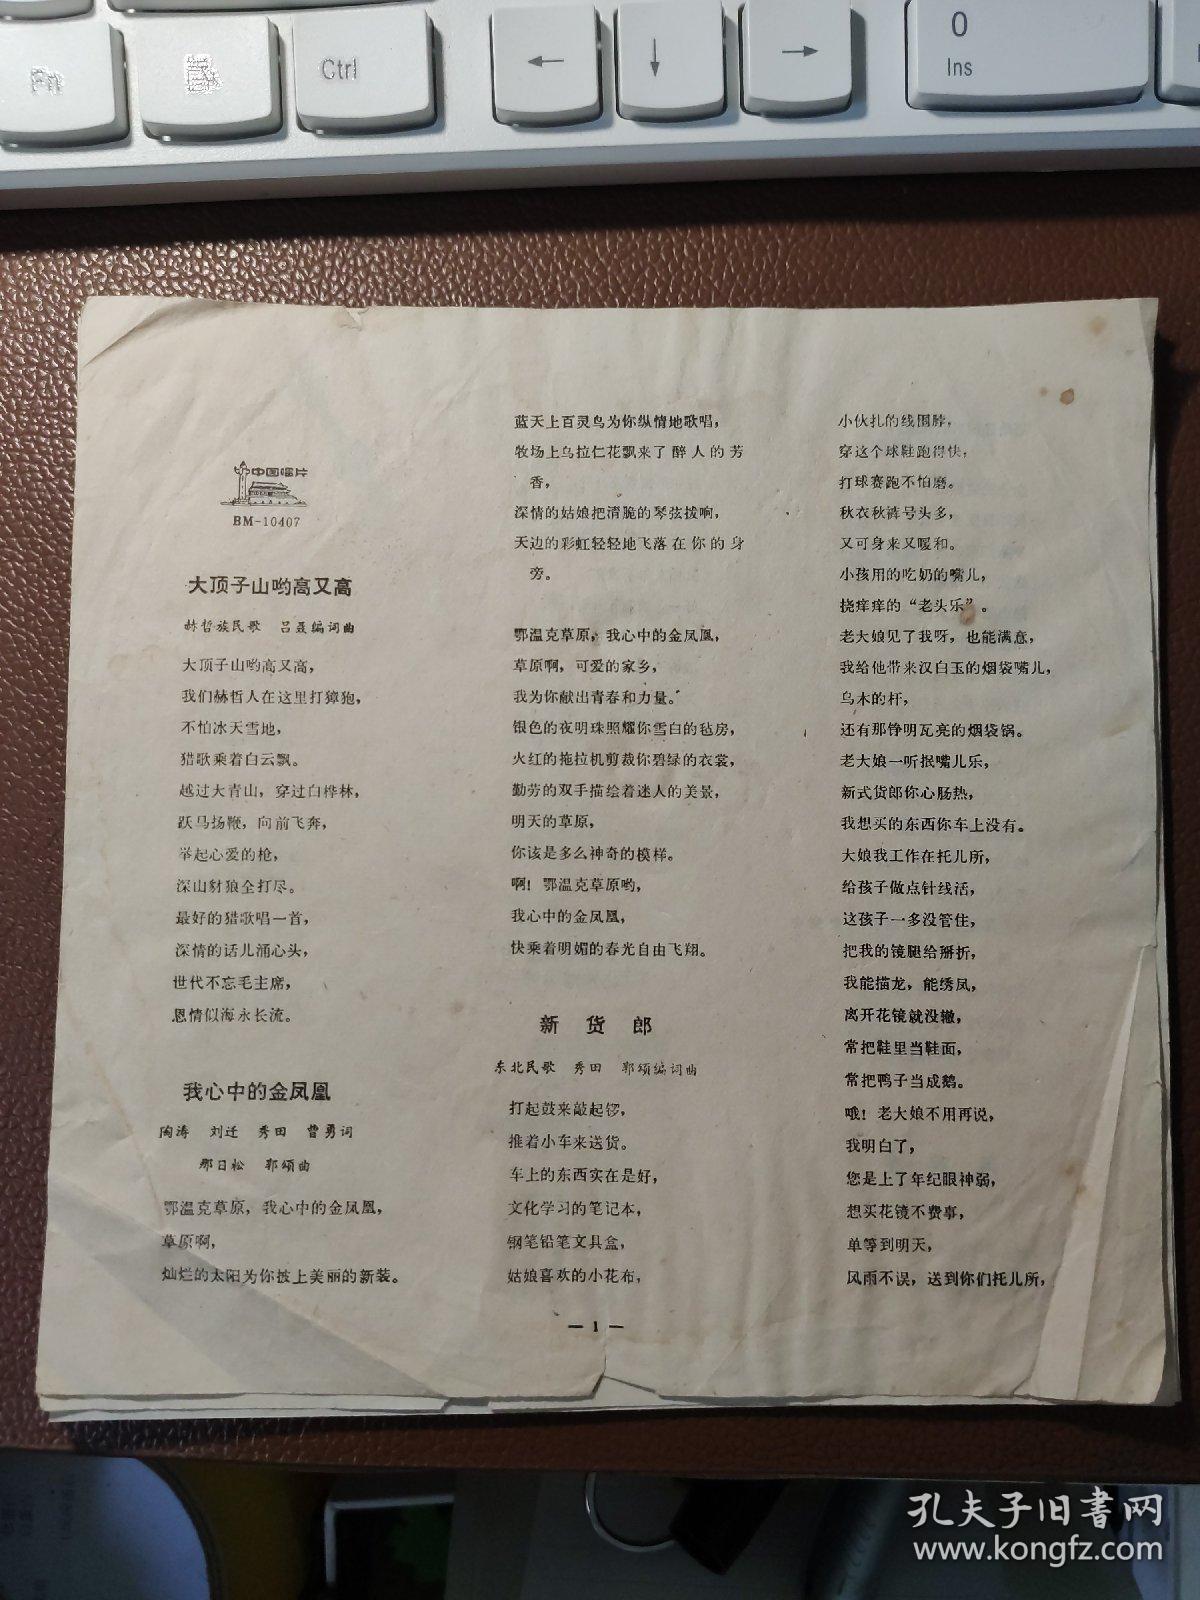 Fn
Ctrl
←
↓
→
0
Ins
中国唱片
BM-10407
大顶子山哟高又高
赫哲族民歌 吕聂编词曲
大顶子山哟高又高，
我们赫哲人在这里打獐狍，
不怕冰天雪地，
猎歌乘着白云飘。
越过大青山，穿过白桦林，
跃马扬鞭，向前飞奔，
举起心爱的枪，
深山豺狼全打尽。
最好的猎歌唱一首，
深情的话儿涌心头，
世代不忘毛主席，
恩情似海永长流。
我心中的金凤凰
陶涛 刘迁 秀田 曹勇词
那日松 郭颂曲
鄂温克草原，我心中的金凤凰，
草原啊，
灿烂的太阳为你披上美丽的新装。
蓝天上百灵鸟为你纵情地歌唱，
牧场上乌拉仁花飘来了醉人的芳
香，
深情的姑娘把清脆的琴弦拨响，
天边的彩虹轻轻地飞落在你的身
旁。
鄂温克草原，我心中的金凤凰，
草原啊，可爱的家乡，
我为你献出青春和力量。
银色的夜明珠照耀你雪白的毡房，
火红的拖拉机剪裁你碧绿的衣裳，
勤劳的双手描绘着迷人的美景，
明天的草原，
你该是多么神奇的模样。
啊！鄂温克草原哟，
我心中的金凤凰，
快乘着明媚的春光自由飞翔。
新货郎
东北民歌 秀田 郭颂编词曲
打起鼓来敲起锣，
推着小车来送货。
车上的东西实在是好，
文化学习的笔记本，
钢笔铅笔文具盒，
姑娘喜欢的小花布，
小伙扎的线围脖，
穿这个球鞋跑得快，
打球赛跑不怕磨。
秋衣秋裤号头多，
又可身来又暖和。
小孩用的吃奶的嘴儿，
挠痒痒的“老头乐”。
老大娘见了我呀，也能满意，
我给他带来汉白玉的烟袋嘴儿，
乌木的杆，
还有那铮明瓦亮的烟袋锅。
老大娘一听抿嘴儿乐，
新式货郎你心肠热，
我想买的东西你车上没有。
大娘我工作在托儿所，
给孩子做点针线活，
这孩子一多没管住，
把我的镜腿给掰折，
我能描龙，能绣凤，
离开花镜就没辙，
常把鞋里当鞋面，
常把鸭子当成鹅。
哦！老大娘不用再说，
我明白了，
您是上了年纪眼神弱，
想买花镜不费事，
单等到明天，
风雨不误，送到你们托儿所，
— 1 —
孔夫子旧书网
www.kongfz.com